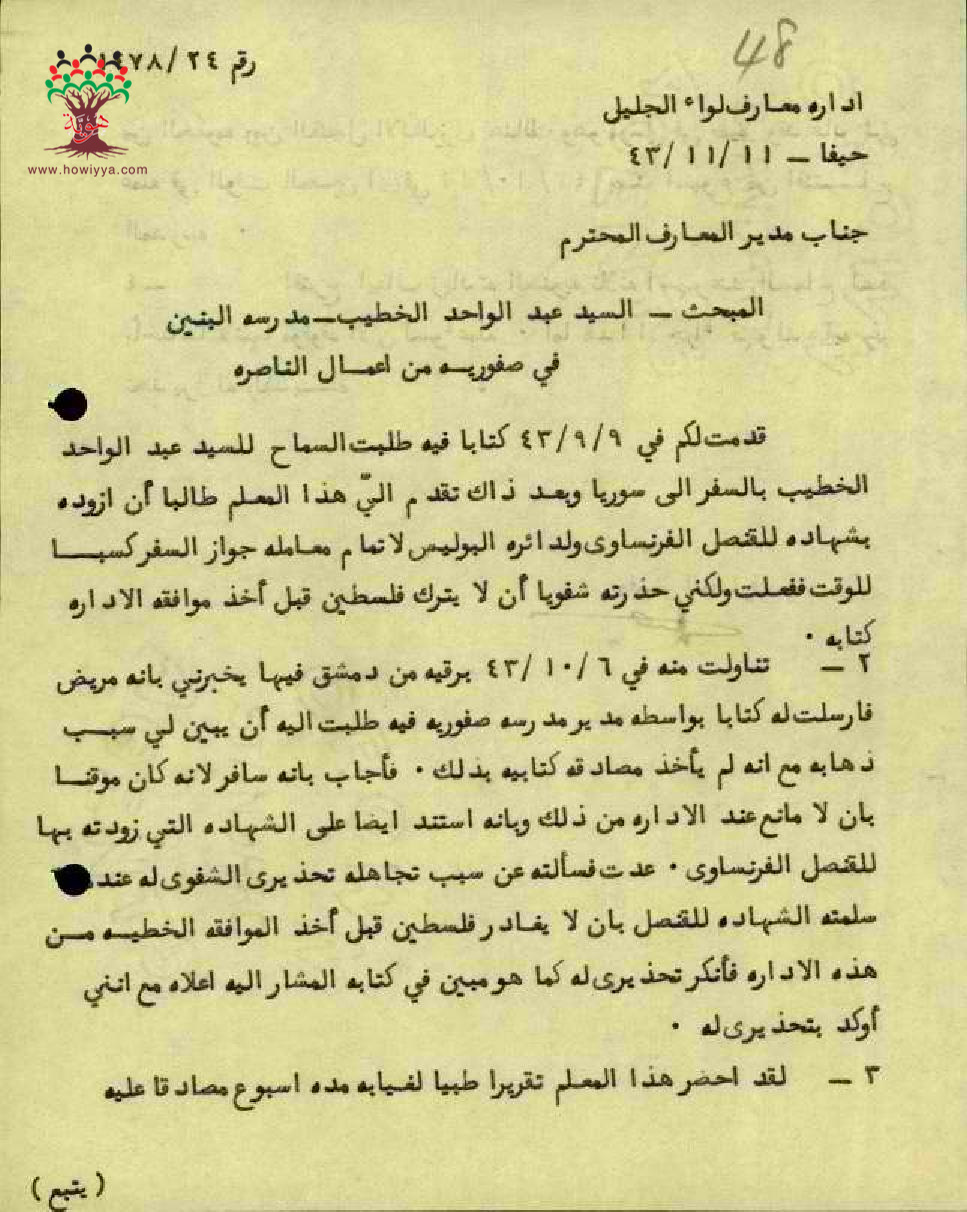 48
رقم ٢٤/ ١٤٧٨
هوية
www.howiyya.com
اداره معارف لواء الجليل
حيفا – ١١ /١١ /٤٣
جناب مدير المعارف المحترم
المبحث – السيد عبد الواحد الخطيب – مدرسه البنين
في صفوريه من اعمال الناصره
قدمت لكم في ٩ /٩ /٤٣ كتابا فيه طلبت السماح للسيد عبد الواحد
الخطيب بالسفر الى سوريا وبعد ذاك تقدم اليّ هذا المعلم طالبا أن ازوده
بشهاده للقنصل الفرنساوى ولدائره البوليس لاتمام معامله جواز السفر كسبا
للوقت ففعلت ولكني حذرته شفويا أن لا يترك فلسطين قبل أخذ موافقه الاداره
كتابه ٠
٢ – تناولت منه في ٦ /١٠ /٤٣ برقيه من دمشق فيها يخبرني بانه مريض
فارسلت له كتابا بواسطه مدير مدرسه صفوريه فيه طلبت اليه أن يبين لي سبب
ذهابه مع انه لم يأخذ مصادقه كتابيه بذلك ٠ فأجاب بانه سافر لانه كان موقنا
بان لا مانع عند الاداره من ذلك وبانه استند ايضا على الشهاده التي زودته بها
للقنصل الفرنساوى ٠ عدت فسألته عن سبب تجاهله تحذيرى الشفوى له عندما
سلمته الشهاده للقنصل بان لا يغادر فلسطين قبل أخذ الموافقه الخطيه من
هذه الاداره فأنكر تحذيرى له كما هو مبين في كتابه المشار اليه اعلاه مع انني
أوكد بتحذيرى له ٠
٣ – لقد احضر هذا المعلم تقريرا طبيا لغيابه مده اسبوع مصادقا عليه
( يتبع )